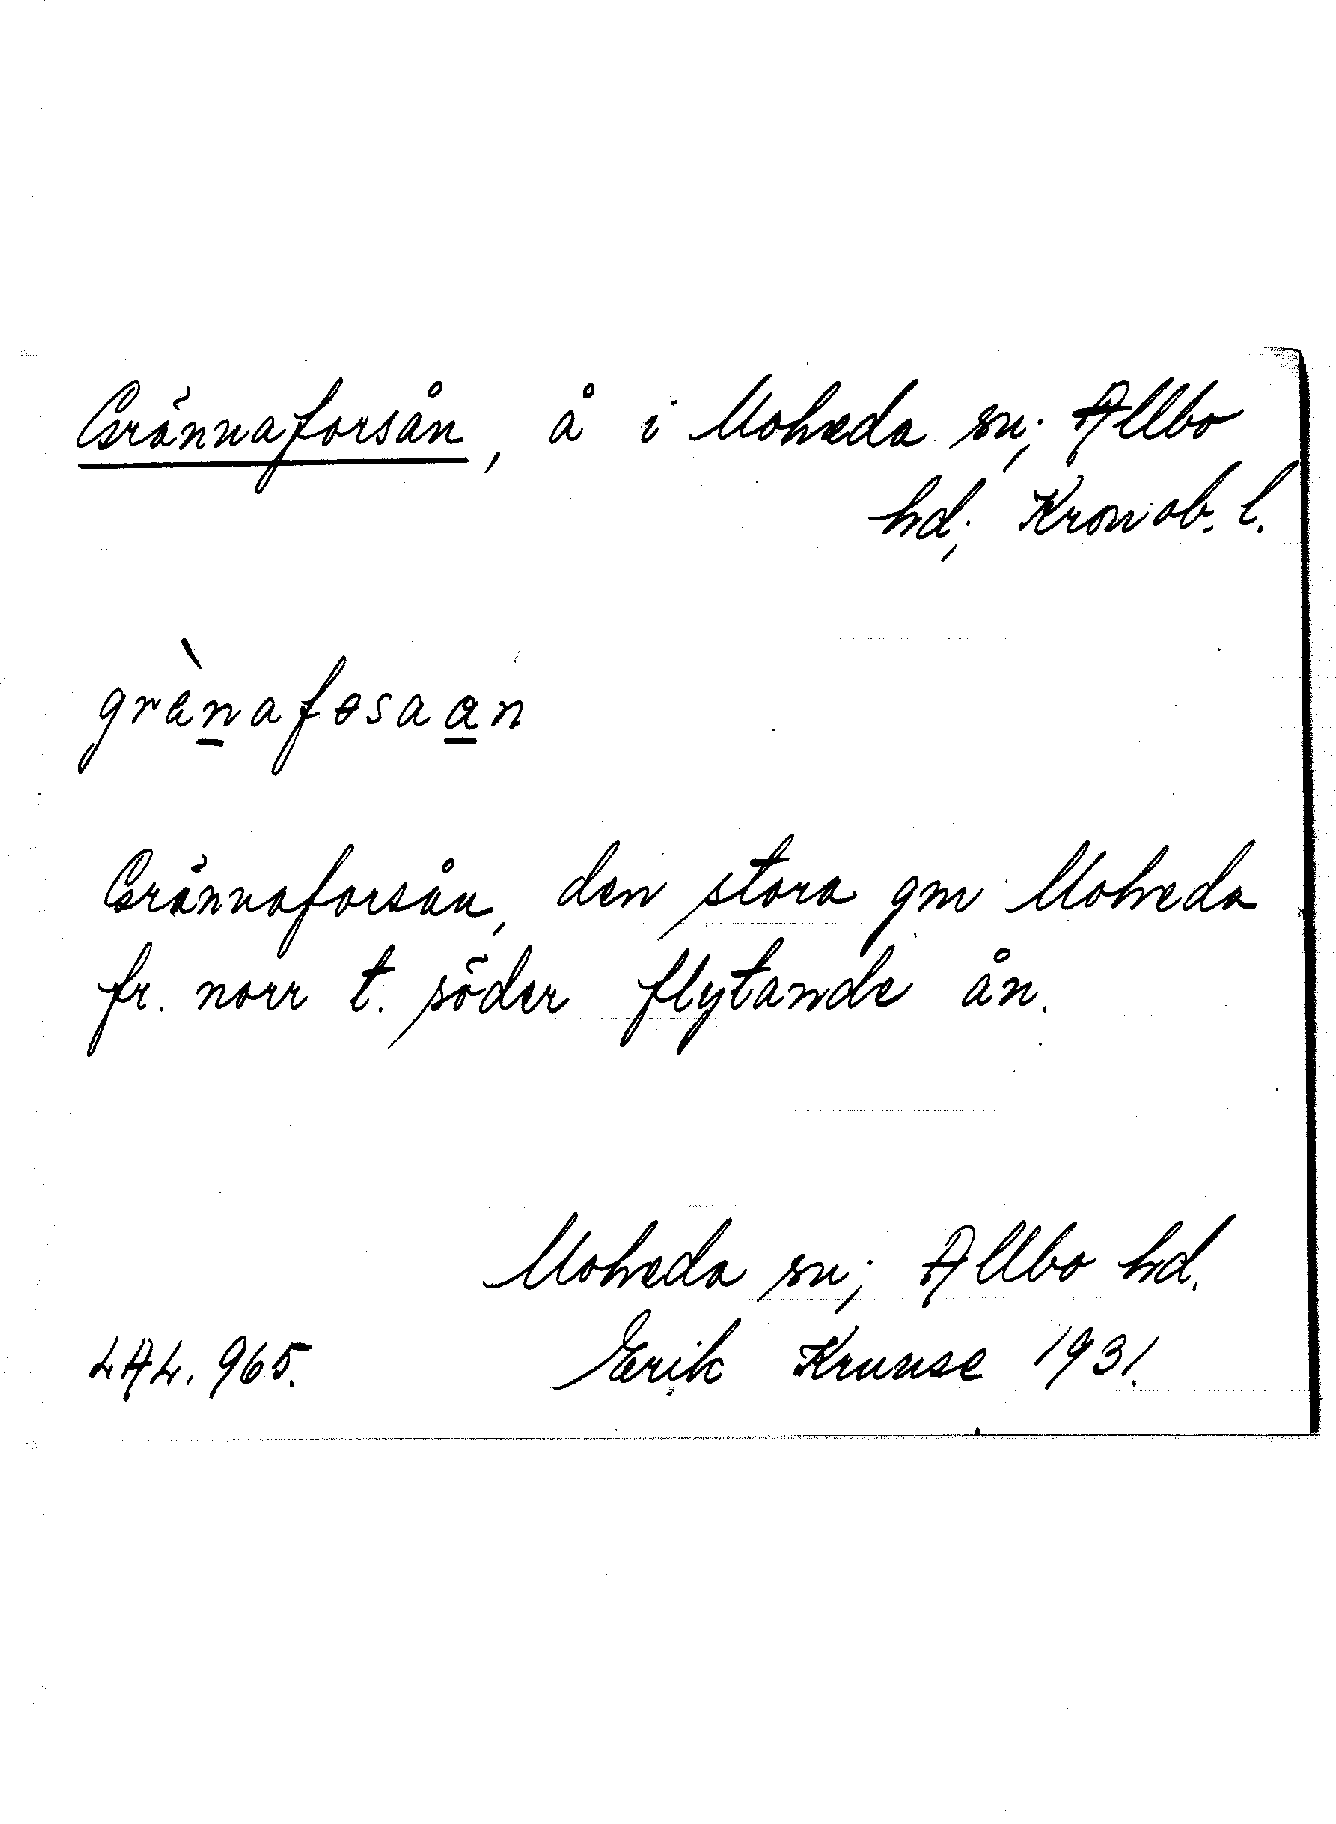 Grännaforsån, å i Moheda sn; Allbo
hd; Kronob. l.
grènafosaan
Grännaforsån, den stora gm Moheda
fr. norr t. söder flytande ån.
Moheda sn; Allbo hd.
LAL. 965. Erik Kruuse 1931.